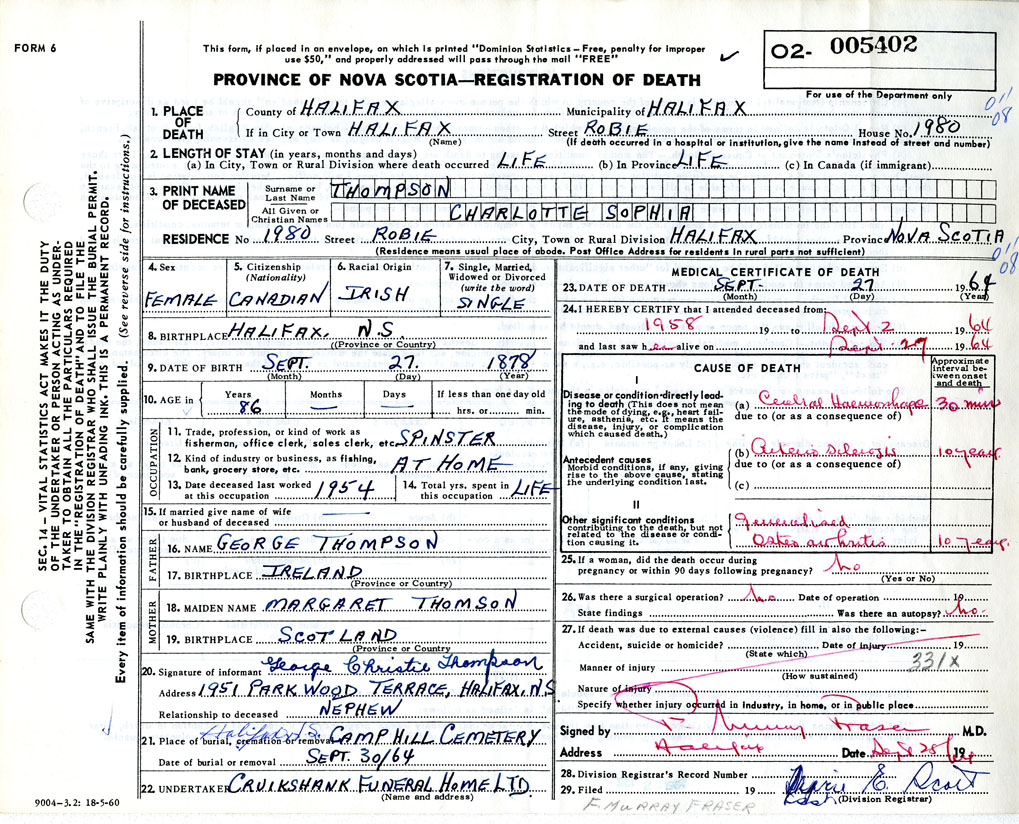 FORM 6
This form, if placed in an envelope, on which is printed "Dominion Statistics – Free, penalty for improper
use $50," and properly addressed will pass through the mail "FREE"
✓
02- 005402
For use of the Department only
PROVINCE OF NOVA SCOTIA—REGISTRATION OF DEATH
011
08
1. PLACE OF DEATH
County of HALIFAX Municipality of HALIFAX
If in City or Town HALIFAX Street ROBIE House No. 1980
(Name) (If death occurred in a hospital or institution, give the name instead of street and number)
2. LENGTH OF STAY (in years, months and days)
(a) In City, Town or Rural Division where death occurred LIFE (b) In Province LIFE (c) In Canada (if immigrant)
3. PRINT NAME OF DECEASED
Surname or Last Name THOMPSON
All Given or Christian Names CHARLOTTE SOPHIA
RESIDENCE No 1980 Street ROBIE City, Town or Rural Division HALIFAX Province NOVA SCOTIA
(Residence means usual place of abode. Post Office Address for residents in rural parts not sufficient)
011
08
4. Sex
FEMALE
5. Citizenship
(Nationality)
CANADIAN
6. Racial Origin
IRISH
7. Single, Married,
Widowed or Divorced
(write the word)
SINGLE
8. BIRTHPLACE HALIFAX, N.S.
(Province or Country)
9. DATE OF BIRTH SEPT. 27. 1878
(Month) (Day) (Year)
10. AGE in Years 86 Months — Days — If less than one day old
hrs. or min.
OCCUPATION
11. Trade, profession, or kind of work as
fishermen, office clerk, sales clerk, etc. SPINSTER
12. Kind of industry or business, as fishing,
bank, grocery store, etc. AT HOME
13. Date deceased last worked
at this occupation 1954
14. Total yrs. spent in
this occupation LIFE
15. If married give name of wife
or husband of deceased —
FATHER
16. NAME GEORGE THOMPSON
17. BIRTHPLACE IRELAND
(Province or Country)
MOTHER
18. MAIDEN NAME MARGARET THOMSON
19. BIRTHPLACE SCOTLAND
(Province or Country)
20. Signature of informant George Christie Thompson
Address 1951 PARKWOOD TERRACE, HALIFAX, N.S
Relationship to deceased NEPHEW
Halifax N.S.
21. Place of burial, cremation or removal CAMP HILL CEMETERY
Date of burial or removal SEPT. 30/64
22. UNDERTAKER CRUIKSHANK FUNERAL HOME LTD.
(Name and address)
MEDICAL CERTIFICATE OF DEATH
23. DATE OF DEATH SEPT- 27 1964
(Month) (Day) (Year)
24. I HEREBY CERTIFY that I attended deceased from:
1958 19 to Sept 2 1964
and last saw her alive on Sept. 27 1964
CAUSE OF DEATH
Approximate
interval be-
tween onset
and death
I
Disease or condition directly lead-
ing to death (This does not mean
the mode of dying, e.g., heart fail-
ure, asthenia, etc. It means the
disease, injury, or complication
which caused death.)
(a) Cerebral Haemorrhage 30 mins
due to (or as a consequence of)
Antecedent causes
Morbid conditions, if any, giving
rise to the above cause, stating
the underlying condition last.
(b) Arterio Sclerosis 10 years
due to (or as a consequence of)
(c)
II
Other significant conditions
contributing to the death, but not
related to the disease or condi-
tion causing it.
Generalised
Osteo arthritis 10 years
25. If a woman, did the death occur during
pregnancy or within 90 days following pregnancy? No
(Yes or No)
26. Was there a surgical operation? No Date of operation 19
State findings Was there an autopsy? No.
27. If death was due to external causes (violence) fill in also the following:–
Accident, suicide or homicide? Date of injury 19
(State which)
Manner of injury 331X
(How sustained)
Nature of injury
Specify whether injury occurred in industry, in home, or in public place
Signed by F. Murray Fraser M.D.
Address Halifax Date Sept 28/64 19
28. Division Registrar's Record Number
29. Filed 19 E. Scott
(Division Registrar)
F. MURRAY FRASER
SEC. 14 – VITAL STATISTICS ACT MAKES IT THE DUTY
OF THE UNDERTAKER OR PERSON ACTING AS UNDER-
TAKER TO OBTAIN ALL THE PARTICULARS REQUIRED
IN THE "REGISTRATION OF DEATH" AND TO FILE THE
SAME WITH THE DIVISION REGISTRAR WHO SHALL ISSUE THE BURIAL PERMIT.
WRITE PLAINLY WITH UNFADING INK. THIS IS A PERMANENT RECORD.
Every item of information should be carefully supplied. (See reverse side for instructions.)
9004–3.2: 18-5-60